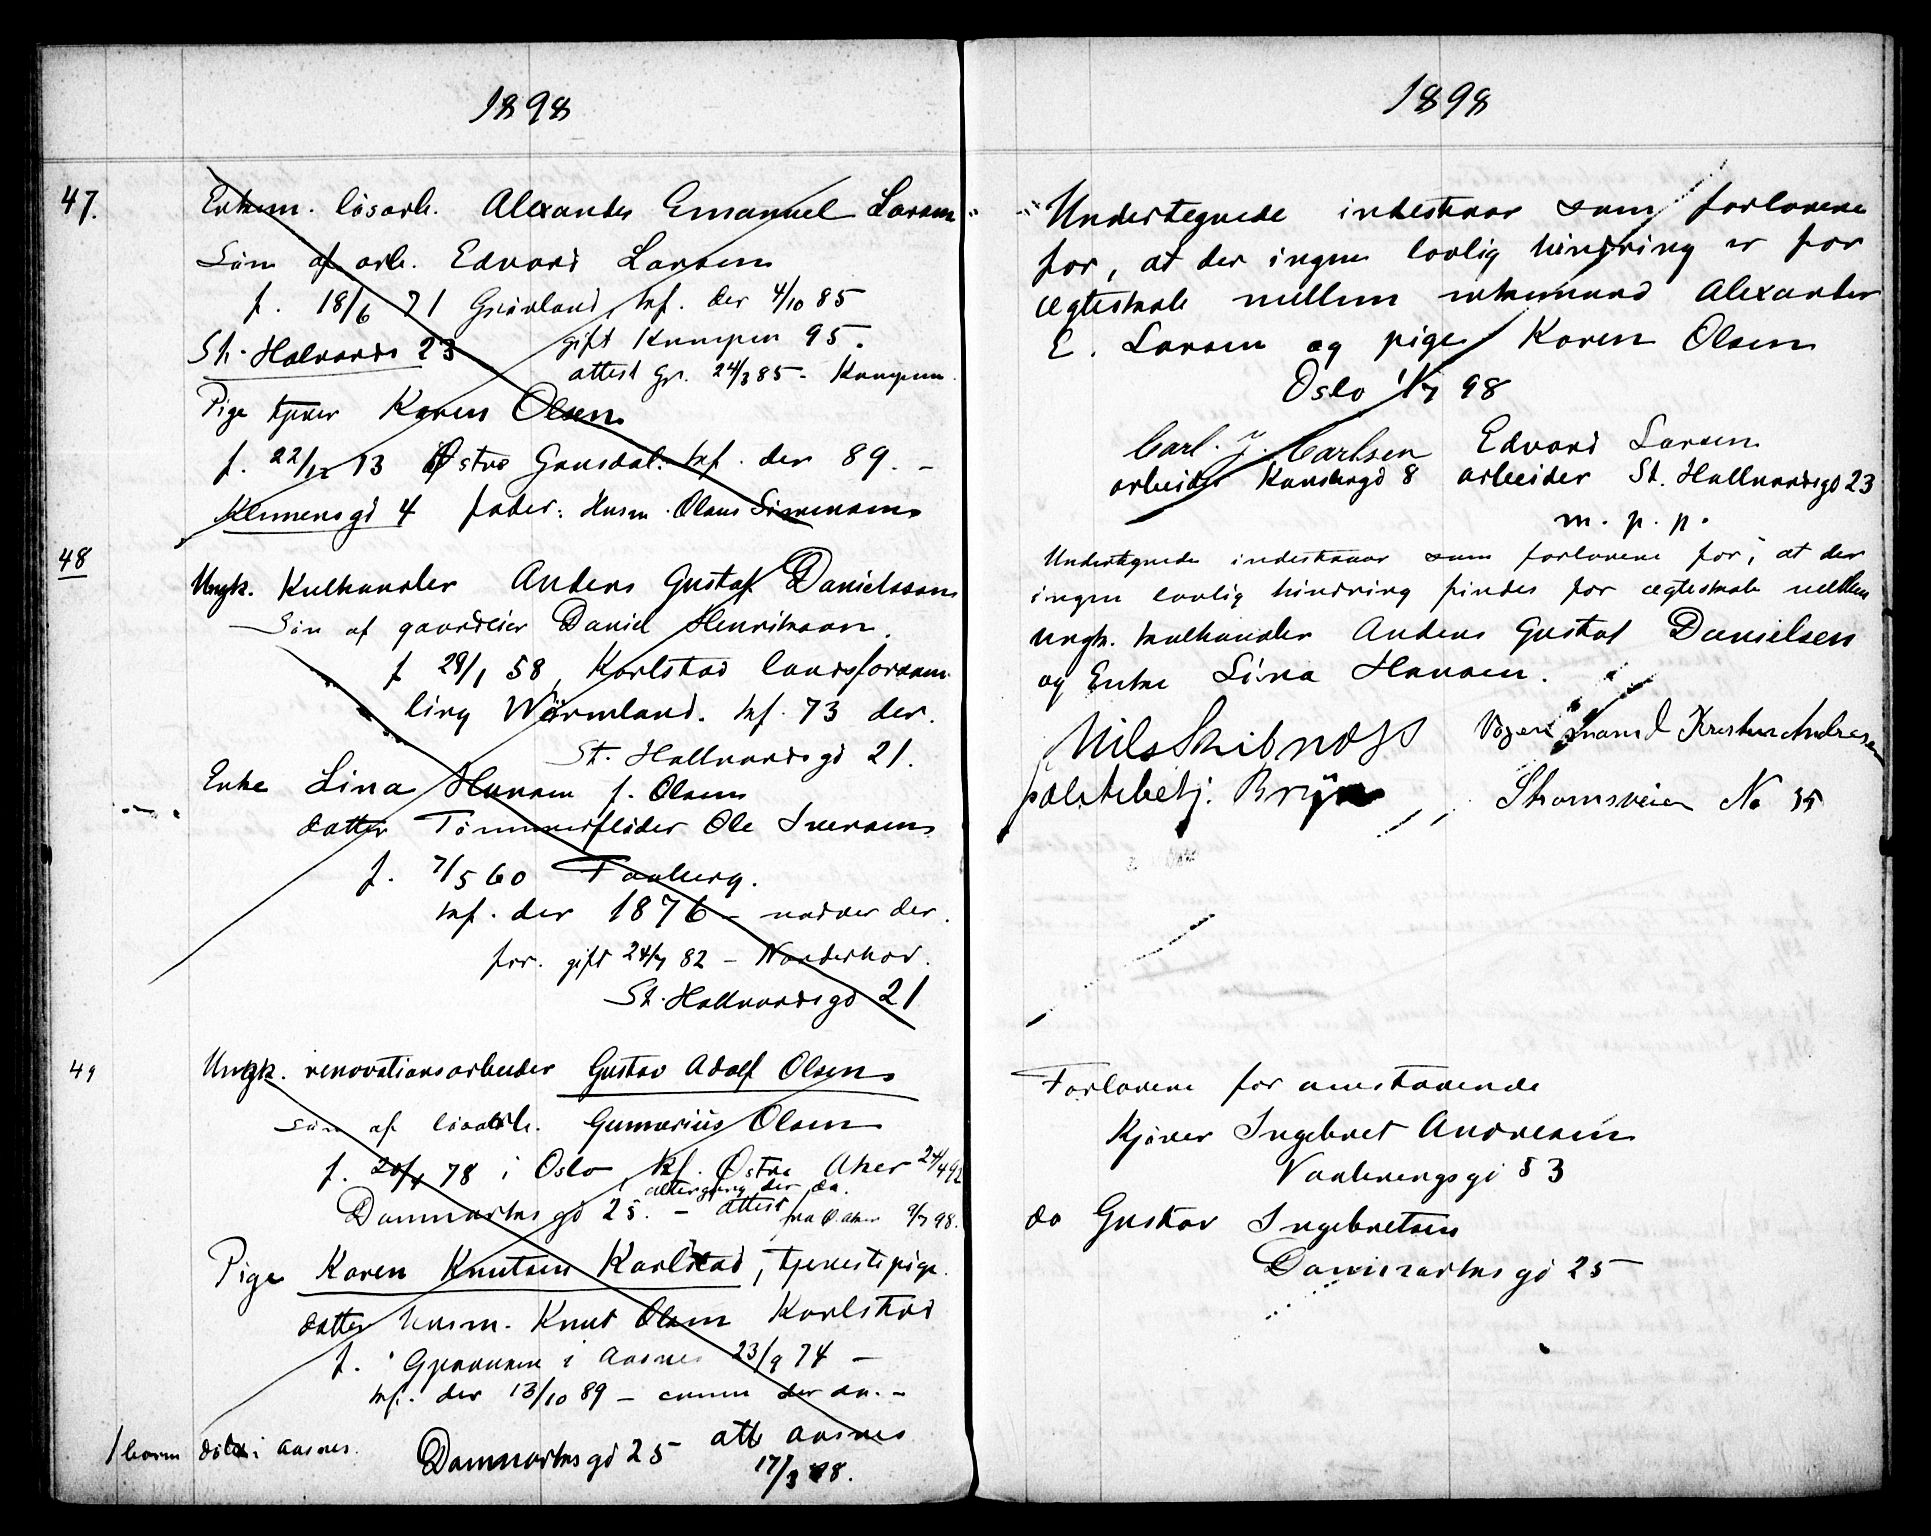 1898
47.
Enkem. løsarb. Alexander Emanuel Larsen
Søn af arb. Edvard Larsen
f. 18/6 71 Grønland, kf. der 4/10 85
St. Halvards 23 gift Kampen 95.
attest Gr. 24/3 85 - Kampen.
Pige tjener Karen Olsen
f. 22/12 73 Østre Gausdal. kf. der 89. -
Klemensgd 4 fader: Husm. Olaus Simensen
48
Ungk. Kulhandler Anders Gustaf Danielsson
Søn af gaardeier Daniel Henriksson.
f 28/1 58, Karlstad landsforsam
ling Wärmland. kf. 73 der.
St. Hallvardsgd 21.
Enke Lina Hansen f. Olsen
datter Tømmerfløder Ole Iversen
f. 7/5 60 Faaberg.
kf. der 1876 - nadver der.
for. gift 24/7 82 - Norderhov.
St. Hallvardsgd 21
49
Ungk. renovationsarbeider Gustav Adolf Olsen
søn af løsarb. Gunnerius Olsen
f. 20/4 78 i Oslo, kf. Østre Aker 24/4 92
altergang der do.
Danmarksgd 25. - attest fra Ø. Aker 9/7 98.
Pige Karen Knutsen Karlstad, tjenestepige.
datter husm. Knut Olsen Karlstad
f. i Aasnes 23/9 74 -
kf. der 13/10 89 - comm der do. -
1 barn døbt i Aasnes. Danmarksgd 25 att Aasnes
17/3 98.
1898
Undertegnede indestaar som forlovere
for, at der ingen lovlig hindring er for
ægteskab mellem enkemand Alexander
E. Larsen og pige Karen Olsen
Oslo 1/7 98
Carl. J. Carlsen Edvard Larsen
arbeider Kanslergd 8 arbeider St. Hallvardsgd 23
m. p. p.
Undertegnede indestaaar som forlovere for, at der
ingen lovlig hindring findes for ægteskab mellem
ungk. kulhandler Anders Gustaf Danielsen
og Enke Lina Hansen.
Nils Skibnæss Vognmand Kristian Andresen
Bryn Strømsveien No 35
Forlovere for anstaaende
Kjører Ingebret Andresen
Vaalerengsgd 53
do Gustav Ingebretsen
Danmarksgd 25